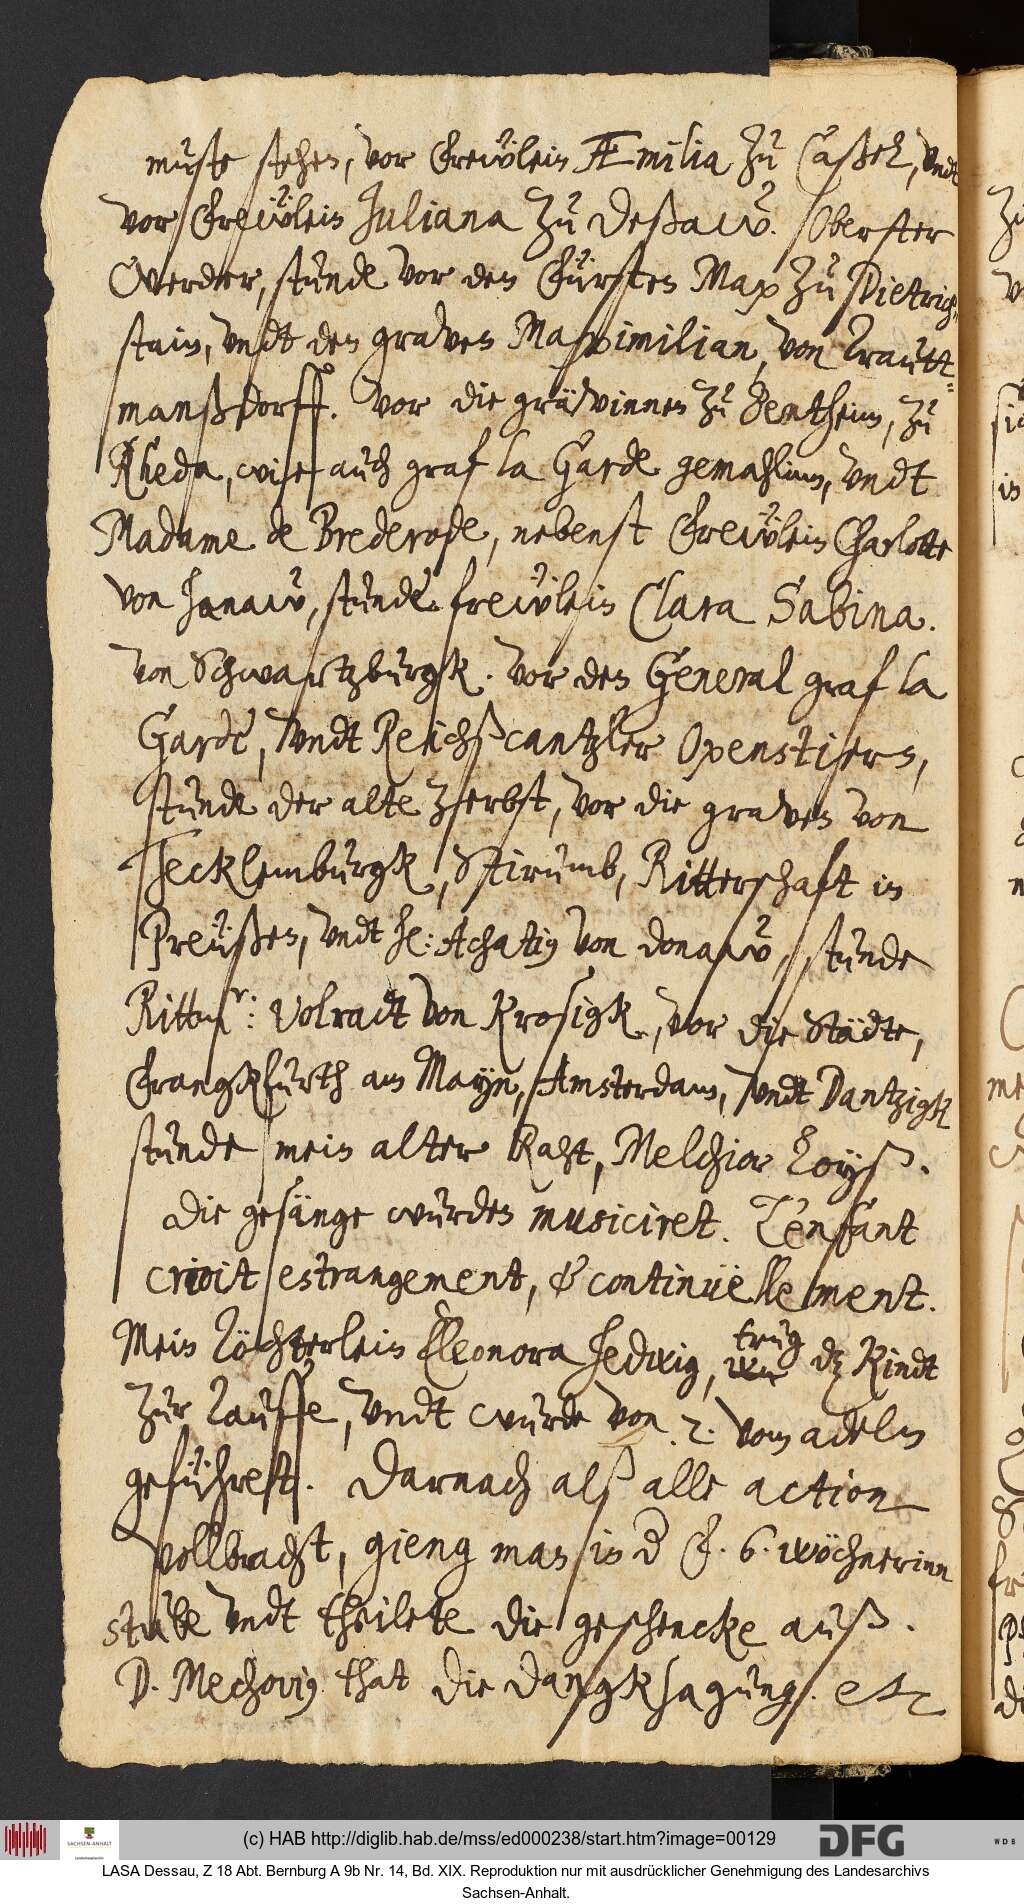 muste stehen, vor Frewlein Æmilia zu Caßel, vndt
vor Frewlein Juliana zu Deßaw. Oberster
Werder, stunde vor den Fürsten Max zu Dietrich-
stain, vndt den graven Maximilian, von Trautt-
manßdorff. vor die grävinnen zu Bentheim, zu
Rheda, wie auch graf la Garde gemahlinn, vndt
Madame de Brederode, nebenst Frewlein Charlotte
von Hanaw, stunde frewlein Clara Sabina.
von Schwartzburgk. vor den General graf la
Garde, vndt Reichßcantzler Oxenstiern,
stunde der alte Zerbst, vor die graven von
Tecklemburgk, Stirumb, Ritterschaft in
Preüßen, vndt he: Achatius von Donaw, stunde
Rittmr: Volradt von Krosigk, vor die Städte,
Frangkfurth am Mayn, Amsterdam, vndt Dantzigk
stunde mein alter Raht, Melchior Loyß.
Die gesänge wurden musiciret. L'enfant
crioit estrangement, & continüellement.
Mein Töchterlein Eleonora Hedwig, trug dz Kindt
zur Tauffe, vndt wurde von .2. vom adeln
geführet. Darnach alß alle action
vollbracht, gieng man in d F. 6. wöchnerinn
stube vndt theilete die geschencke auß.
D. Mechovius that die Dangksagung. etc
(c) HAB http://diglib.hab.de/mss/ed000238/start.htm?image=00129
SACHSEN-ANHALT
DFG
WDB
LASA Dessau, Z 18 Abt. Bernburg A 9b Nr. 14, Bd. XIX. Reproduktion nur mit ausdrücklicher Genehmigung des Landesarchivs
Sachsen-Anhalt.